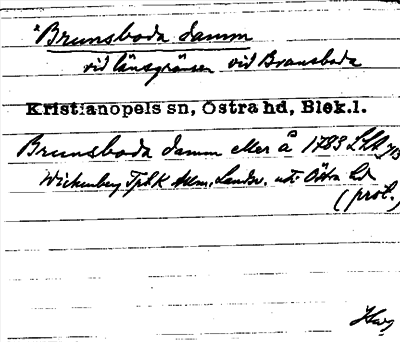 *Brunsboda damm
vid länsgränsen vid Brunsboda
Kristianopels sn, Östra hd, Blek.l.
Brunsboda damm eller å 1783 LSA
Wickenberg Tpl K Allm. Landsv. uti Östra hd
(prot.)